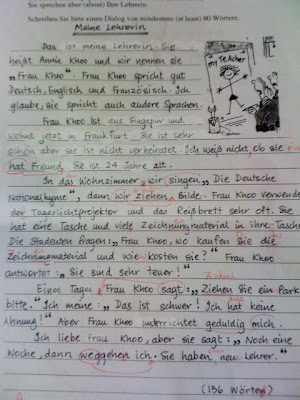 Sie sprechen über (about) Ihre Lehrerin.
Schreiben Sie bitte einen Dialog von mindestens (at least) 80 Wörtern.
Meine Lehrerin
Das ist meine Lehrerin. Sie
heißt Annie Khoo und wir nennen sie
„Frau Khoo“. Frau Khoo spricht gut
Deutsch, Englisch und Französisch. Ich
glaube, sie spricht auch andere Sprachen.
Frau Khoo ist aus Singapur und
wohnt jetzt in Frankfurt. Sie ist sehr
schön aber sie ist nicht verheiratet. Ich weiß nicht, ob sie
hat Freund. Sie ist 24 Jahre alt.
In das Wohnzimmer, wir singen „Die Deutsche
Nationalhyme“, dann wir ziehen Bilde. Frau Khoo verwende
der Tageslichtprojektor und das Reißbrett sehr oft. Sie
hat eine Tasche und viele Zeichnungmaterial in ihre Tasche
Die Studenten fragen: „Frau Khoo, wo kaufen Sie die
Zeichnungmaterial und wie kosten sie?“ Frau Khoo
antwortet: „Sie sind sehr teuer!“
Eines Tages, Frau Khoo sagt: „Ziehen Sie ein Park
bitte.“ Ich meine: „Das ist schwer! Ich hat keine
Ahnung!“ Aber Frau Khoo unterrichtet geduldig mich.
Ich liebe Frau Khoo, aber sie sagt: „Noch eine
Woche, dann weggehen ich. Sie haben neu Lehrer.“
(156 Wörter)
my Teacher